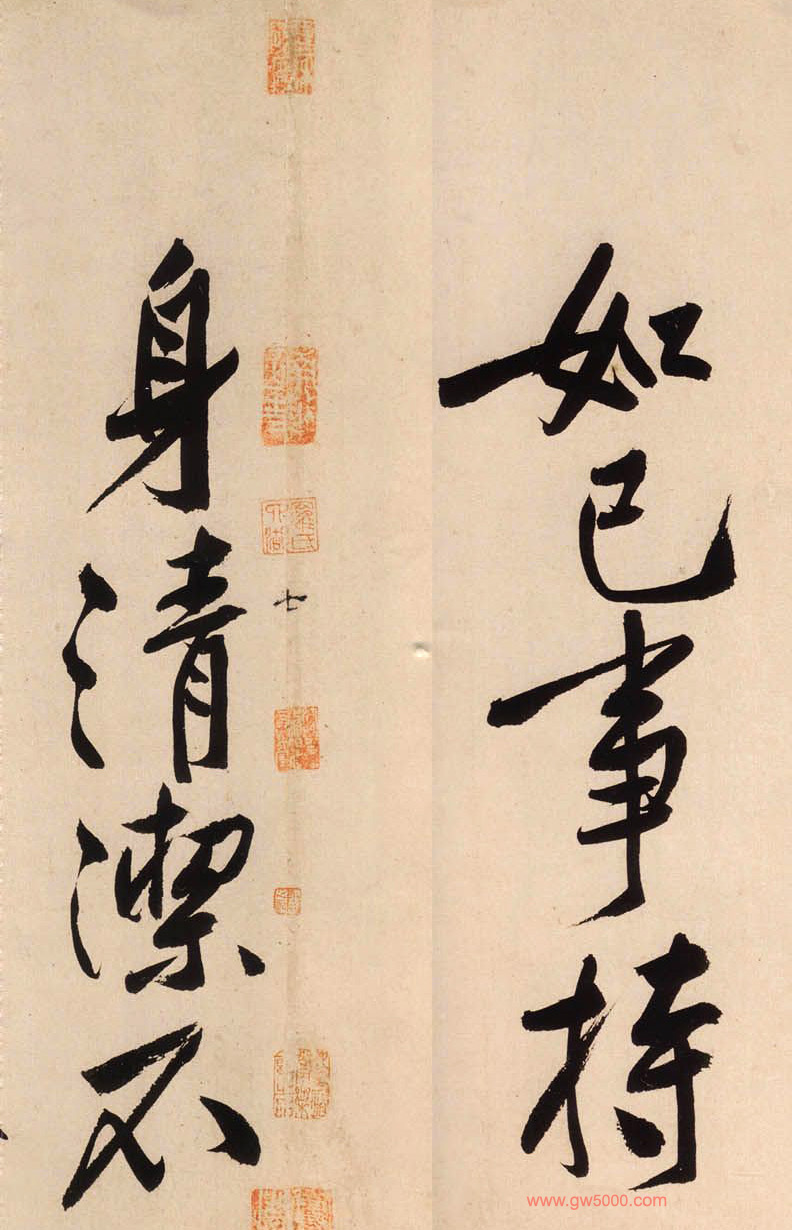 如己事持
七
身清潔不
www.gw5000.com